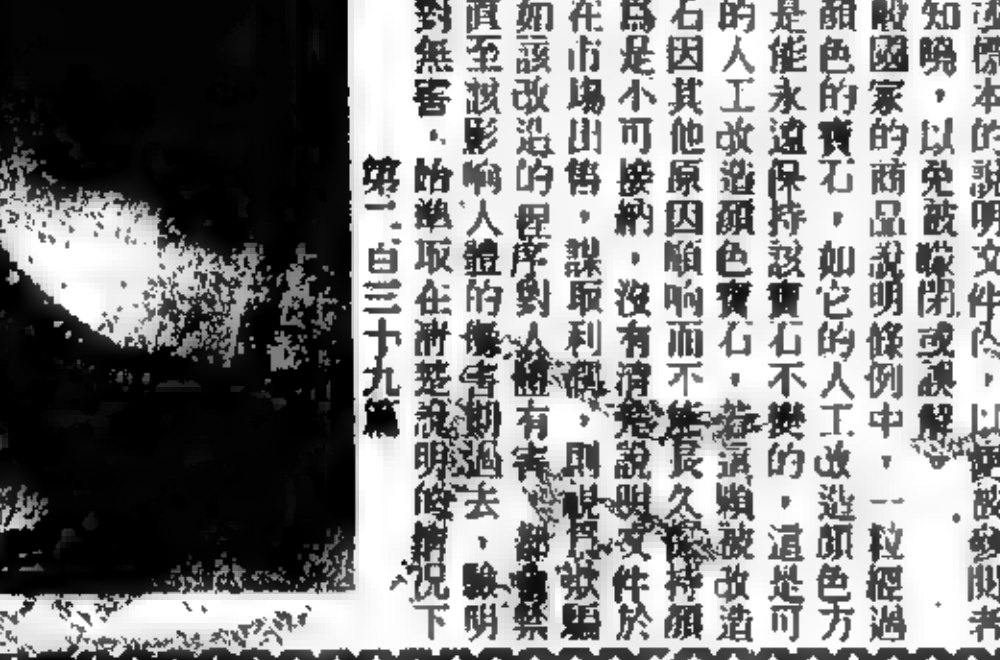 標本的說明文件
知曉，以免被矇閉或誤解
般國家的商品說明條例中，一粒經過
顏色的寶石，如它的人工改造顏色方
是能永遠保持該寶石不變的，這是可
的人工改造顏色寶石，若這類被改造
石因其他原因順响而不能長久保持顏
為是不可接納，沒有清楚說明文件於
在市場出售，謀取利潤，則視爲欺騙
如該改造的程序對人體有害，
直至該影响人體的 害期過去，驗明
對無害，始準取在附楚說明的情况下
第二百三十九篇